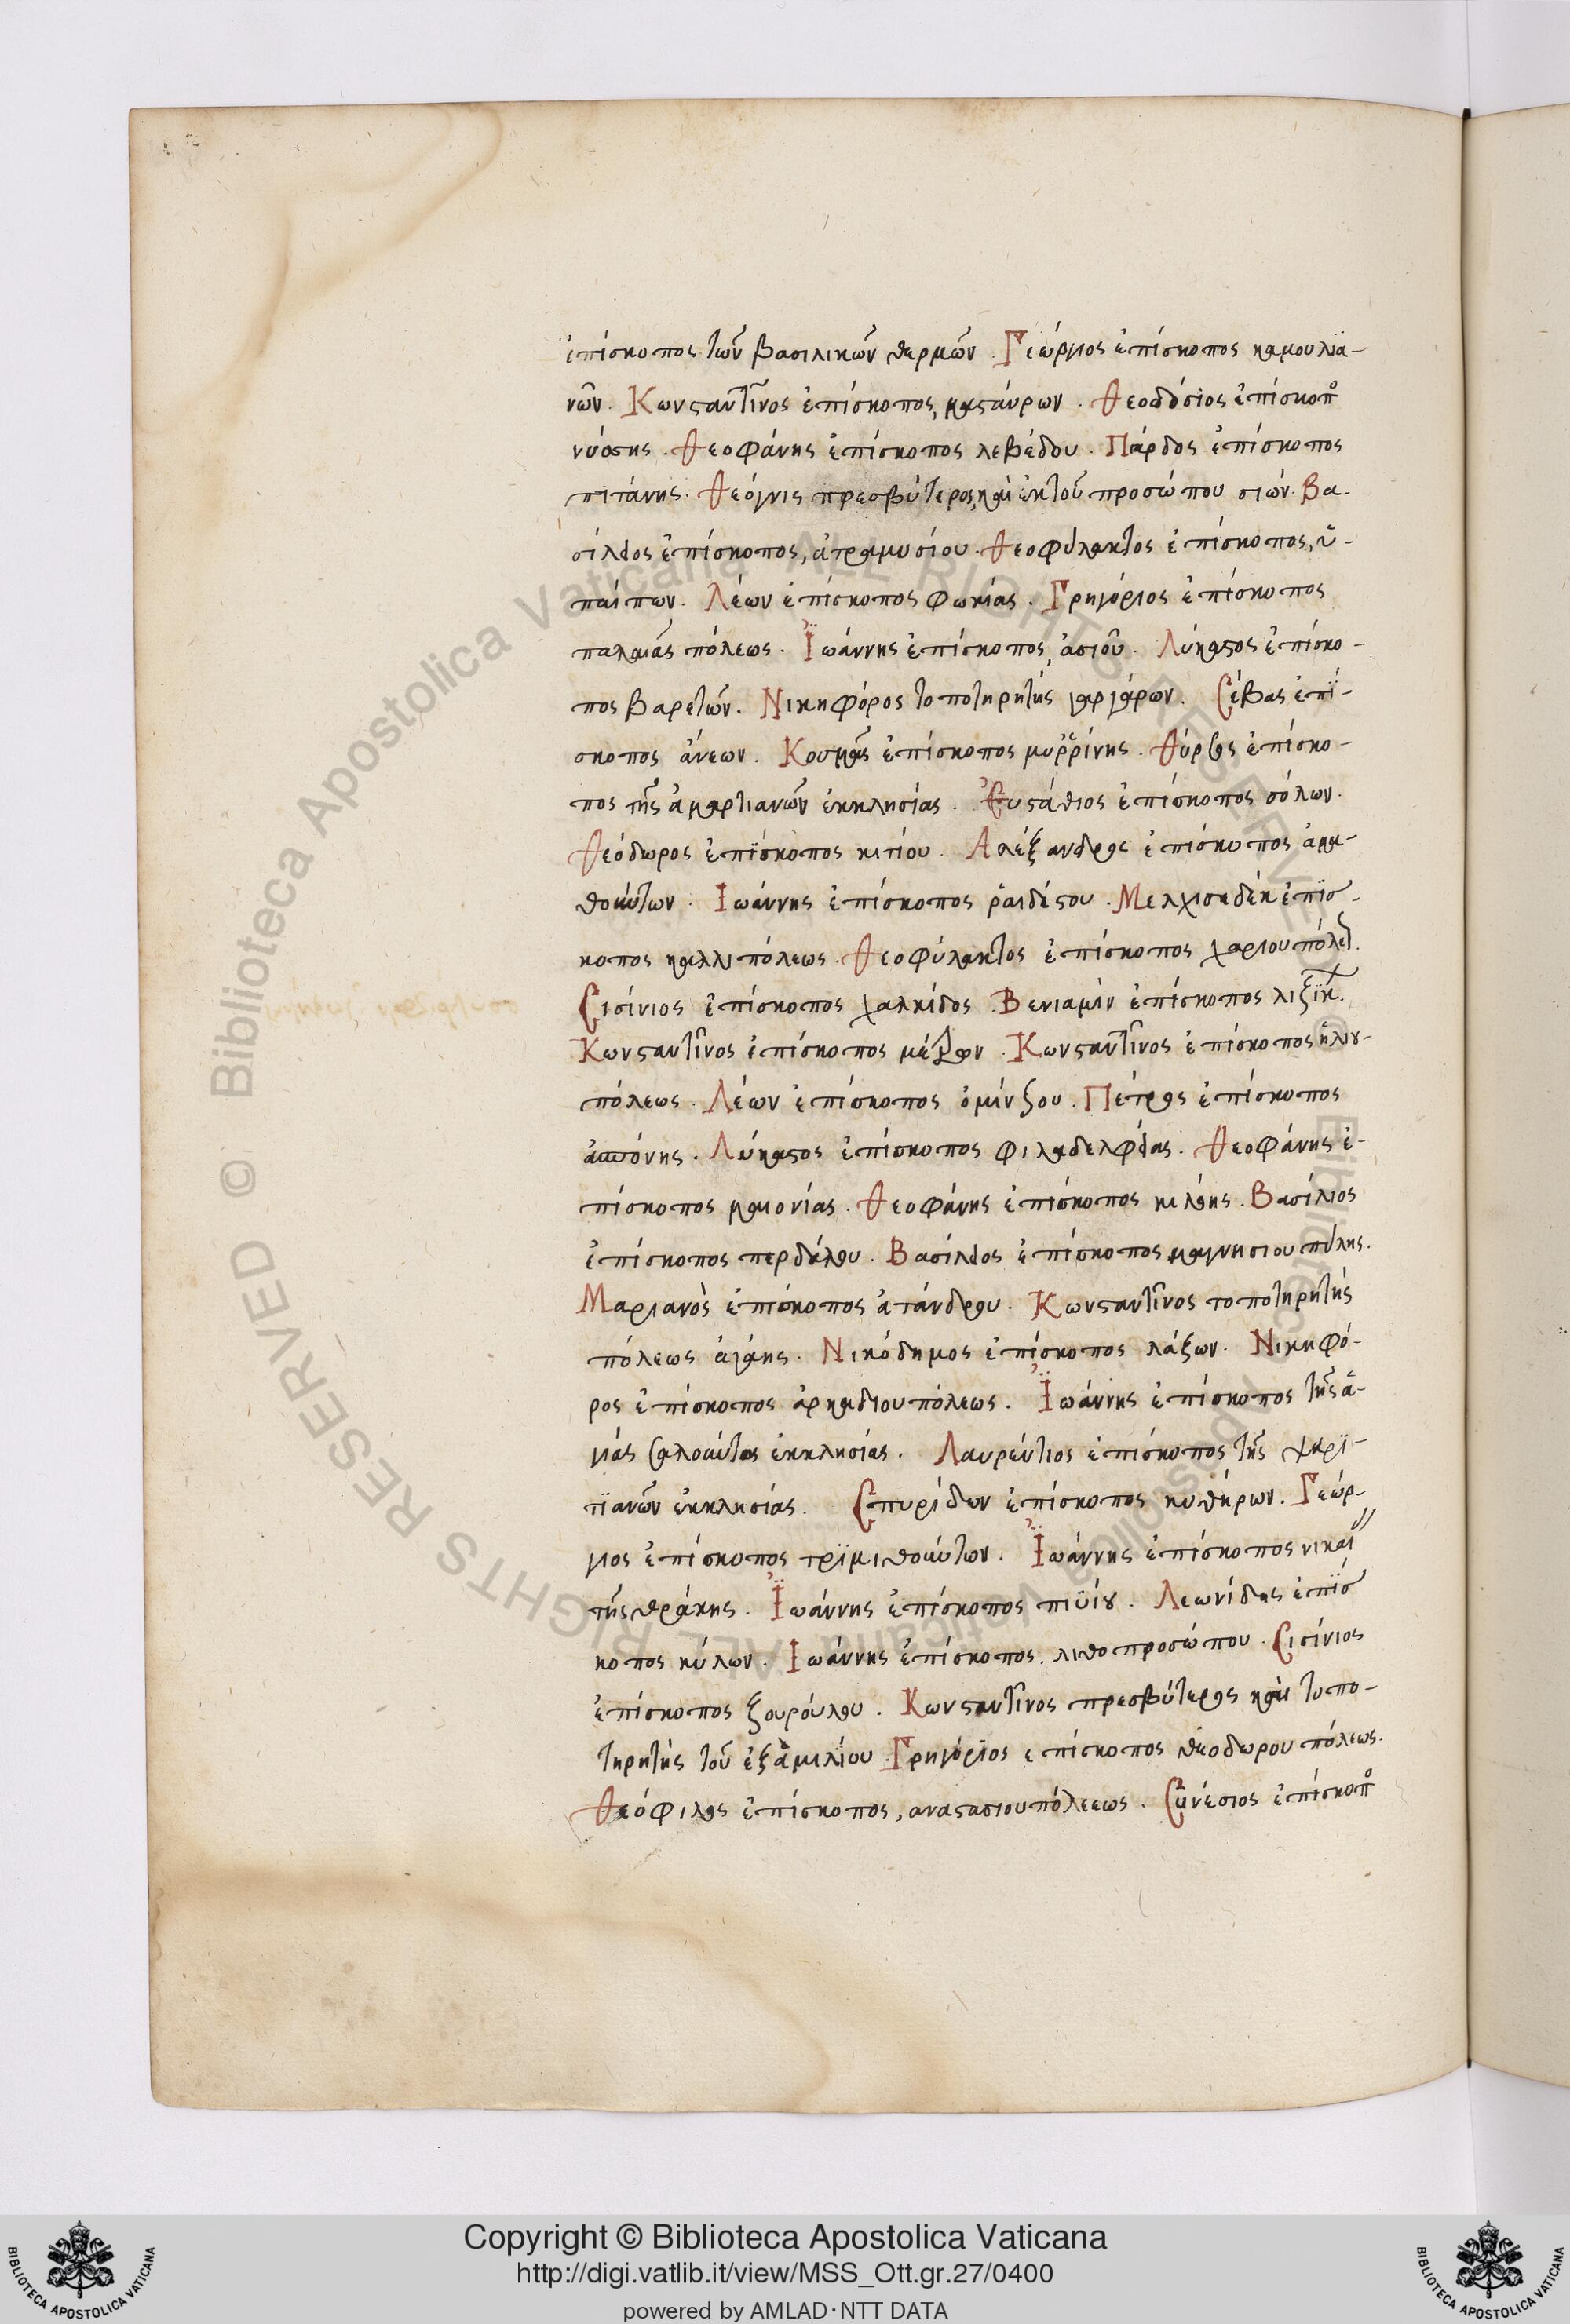 ἐπίσκοπος τῶν βασιλικῶν θερμῶν. Γεώργιος ἐπίσκοπος καμουλϊα-
νῶν. Κωνϛαντῖνος ἐπίσκοπος, μαϛαύρων. Θεοδόσιος ἐπίσκοπ
νύσσης. Θεοφάνης ἐπίσκοπος λεβέδου. Πάρδος ἐπίσκοπος
πιτάνης. Θεόγνις πρεσβύτερος, καὶ ἐκ τοῦ προσώπου σιών. Βα-
σίλειος ἐπίσκοπος, ἀτραμυσίου. Θεοφύλακτος ἐπίσκοπος, ὑ-
παίπων. Λέων ἐπίσκοπος φωκίας. Γρηγόριος ἐπίσκοπος
παλαιᾶς πόλεως. Ἰωάννης ἐπίσκοπος, ἀσιοῦ. Λύκαϛος ἐπίσκο-
πος βαρετῶν. Νικηφόρος τοποτηρητής γαργάρων. Σέβας ἐπϊ-
σκοπος ἀνέων. Κοσμᾶς ἐπίσκοπος μυρρίνης. Θύρσος ἐπίσκο-
πος τῆς ἀμαρτιανῶν ἐκκλησίας. Εὐϛάθιος ἐπίσκοπος σόλων.
Θεόδωρος ἐπΐσκοπος κιτίου. Αλέξανδρος ἐπίσκοπος ἀμα-
θούντων. Ἰωάννης ἐπίσκοπος ῥαιδέϛου. Μελχισεδὲκ ἐπϊσ-
κοπος καλλιπόλεως. Θεοφύλακτος ἐπίσκοπος χαριουπόλε
Σισίνιος ἐπίσκοπος χαλκίδος. Βενιαμὶν ἐπίσκοπος λιζϊκ
Κωνϛαντῖνος ἐπίσκοπος μέτρων. Κωνϛαντῖνος ἐπίσκοπος ἡλιου-
πόλεως. Λέων ἐπίσκοπος ὀμίνζου. Πέτρος ἐπίσκοπος
ἀππόνης. Λύκαϛος ἐπίσκοπος φιλαδελφείας. Θεοφάνης ἐ-
πίσκοπος μαιονίας. Θεοφάνης ἐπίσκοπος κέλλης. Βασίλιος
ἐπίσκοπος περδάλου. Βασίλειος ἐπίσκοπος μαγνησιουπόλης.
Μαριανὸς ἐπίσκοπος ἀτάνδρου. Κωνϛαντῖνος τοποτηρητὴς
πόλεως ἀγάης. Νικόδημος ἐπίσκοπος λάζων. Νικηφό-
ρος ἐπίσκοπος ἀρκαδιουπόλεως. Ἰωάννης ἐπίσκοπος τῆς ἁ-
γίας σαλούντος ἐκκλησίας. Λαυρέντιος ἐπίσκοπος τῆς χαρϊ-
τϊανῶν ἐκκλησίας. Σπυρίδων ἐπίσκοπος κυθήρων. Γεώρ-
γιος ἐπίσκοπος τρϊμιθούντων. Ἰωάννης ἐπίσκοπος νικαί
τῆς θράκης. Ἰωάννης ἐπίσκοπος πιΰίου. Λεωνίδης ἐπϊσ
κοπος κύλων. Ἰωάννης ἐπίσκοπος, λιθοπροσώπου. Σισίνιος
ἐπίσκοπος ζουρούλου. Κωνϛαντῖνος πρεσβύτερος καὶ τοπο-
τηρητὴς τοῦ ἐξαμιλίου. Γρηγόριος ἐπίσκοπος θεοδωρουπόλεως.
Θεόφιλος ἐπίσκοπος, αναϛασιουπόλεεως. Συνέσιος ἐπίσκοπ
© Biblioteca Apostolica Vaticana ALL RIGHTS RESERVED
© Biblioteca Apostolica Vaticana ALL RIGHTS RESERVED
BIBLIOTECA APOSTOLICA VATICANA
Copyright © Biblioteca Apostolica Vaticana
http://digi.vatlib.it/view/MSS_Ott.gr.27/0400
powered by AMLAD·NTT DATA
BIBLIOTECA APOSTOLICA VATICANA